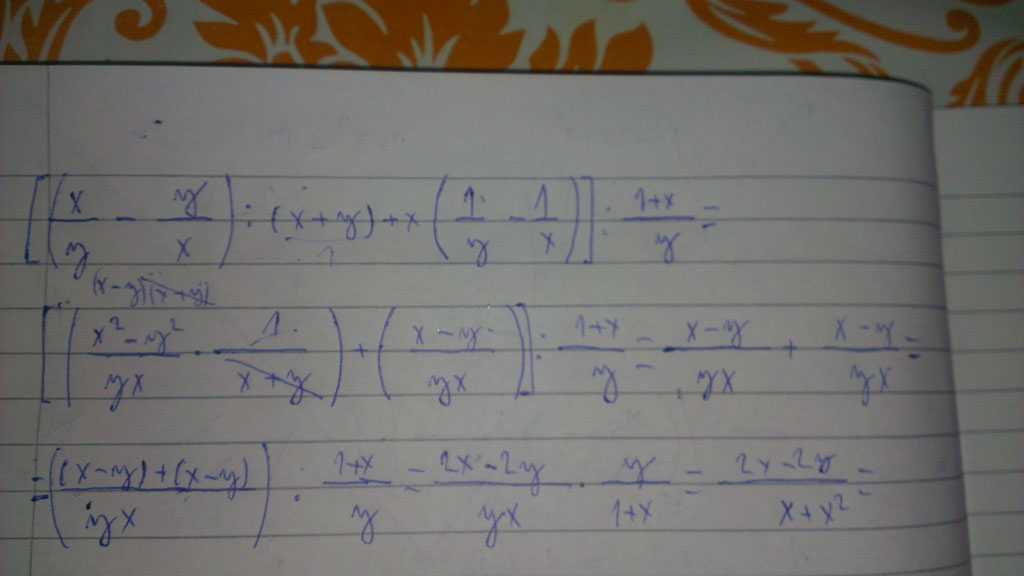 [(x/y - y/x) : (x+y) + x (1/y - 1/x)] : 1+x/y =
(x-y)(x+y)
[(x² - y²/yx · 1/x+y) + (x - y/yx)] : 1+x/y = x-y/yx + x-y/yx =
= ((x-y)+(x-y)/yx) : 1+x/y = 2x-2y/yx · y/1+x = 2x-2y/x+x² =